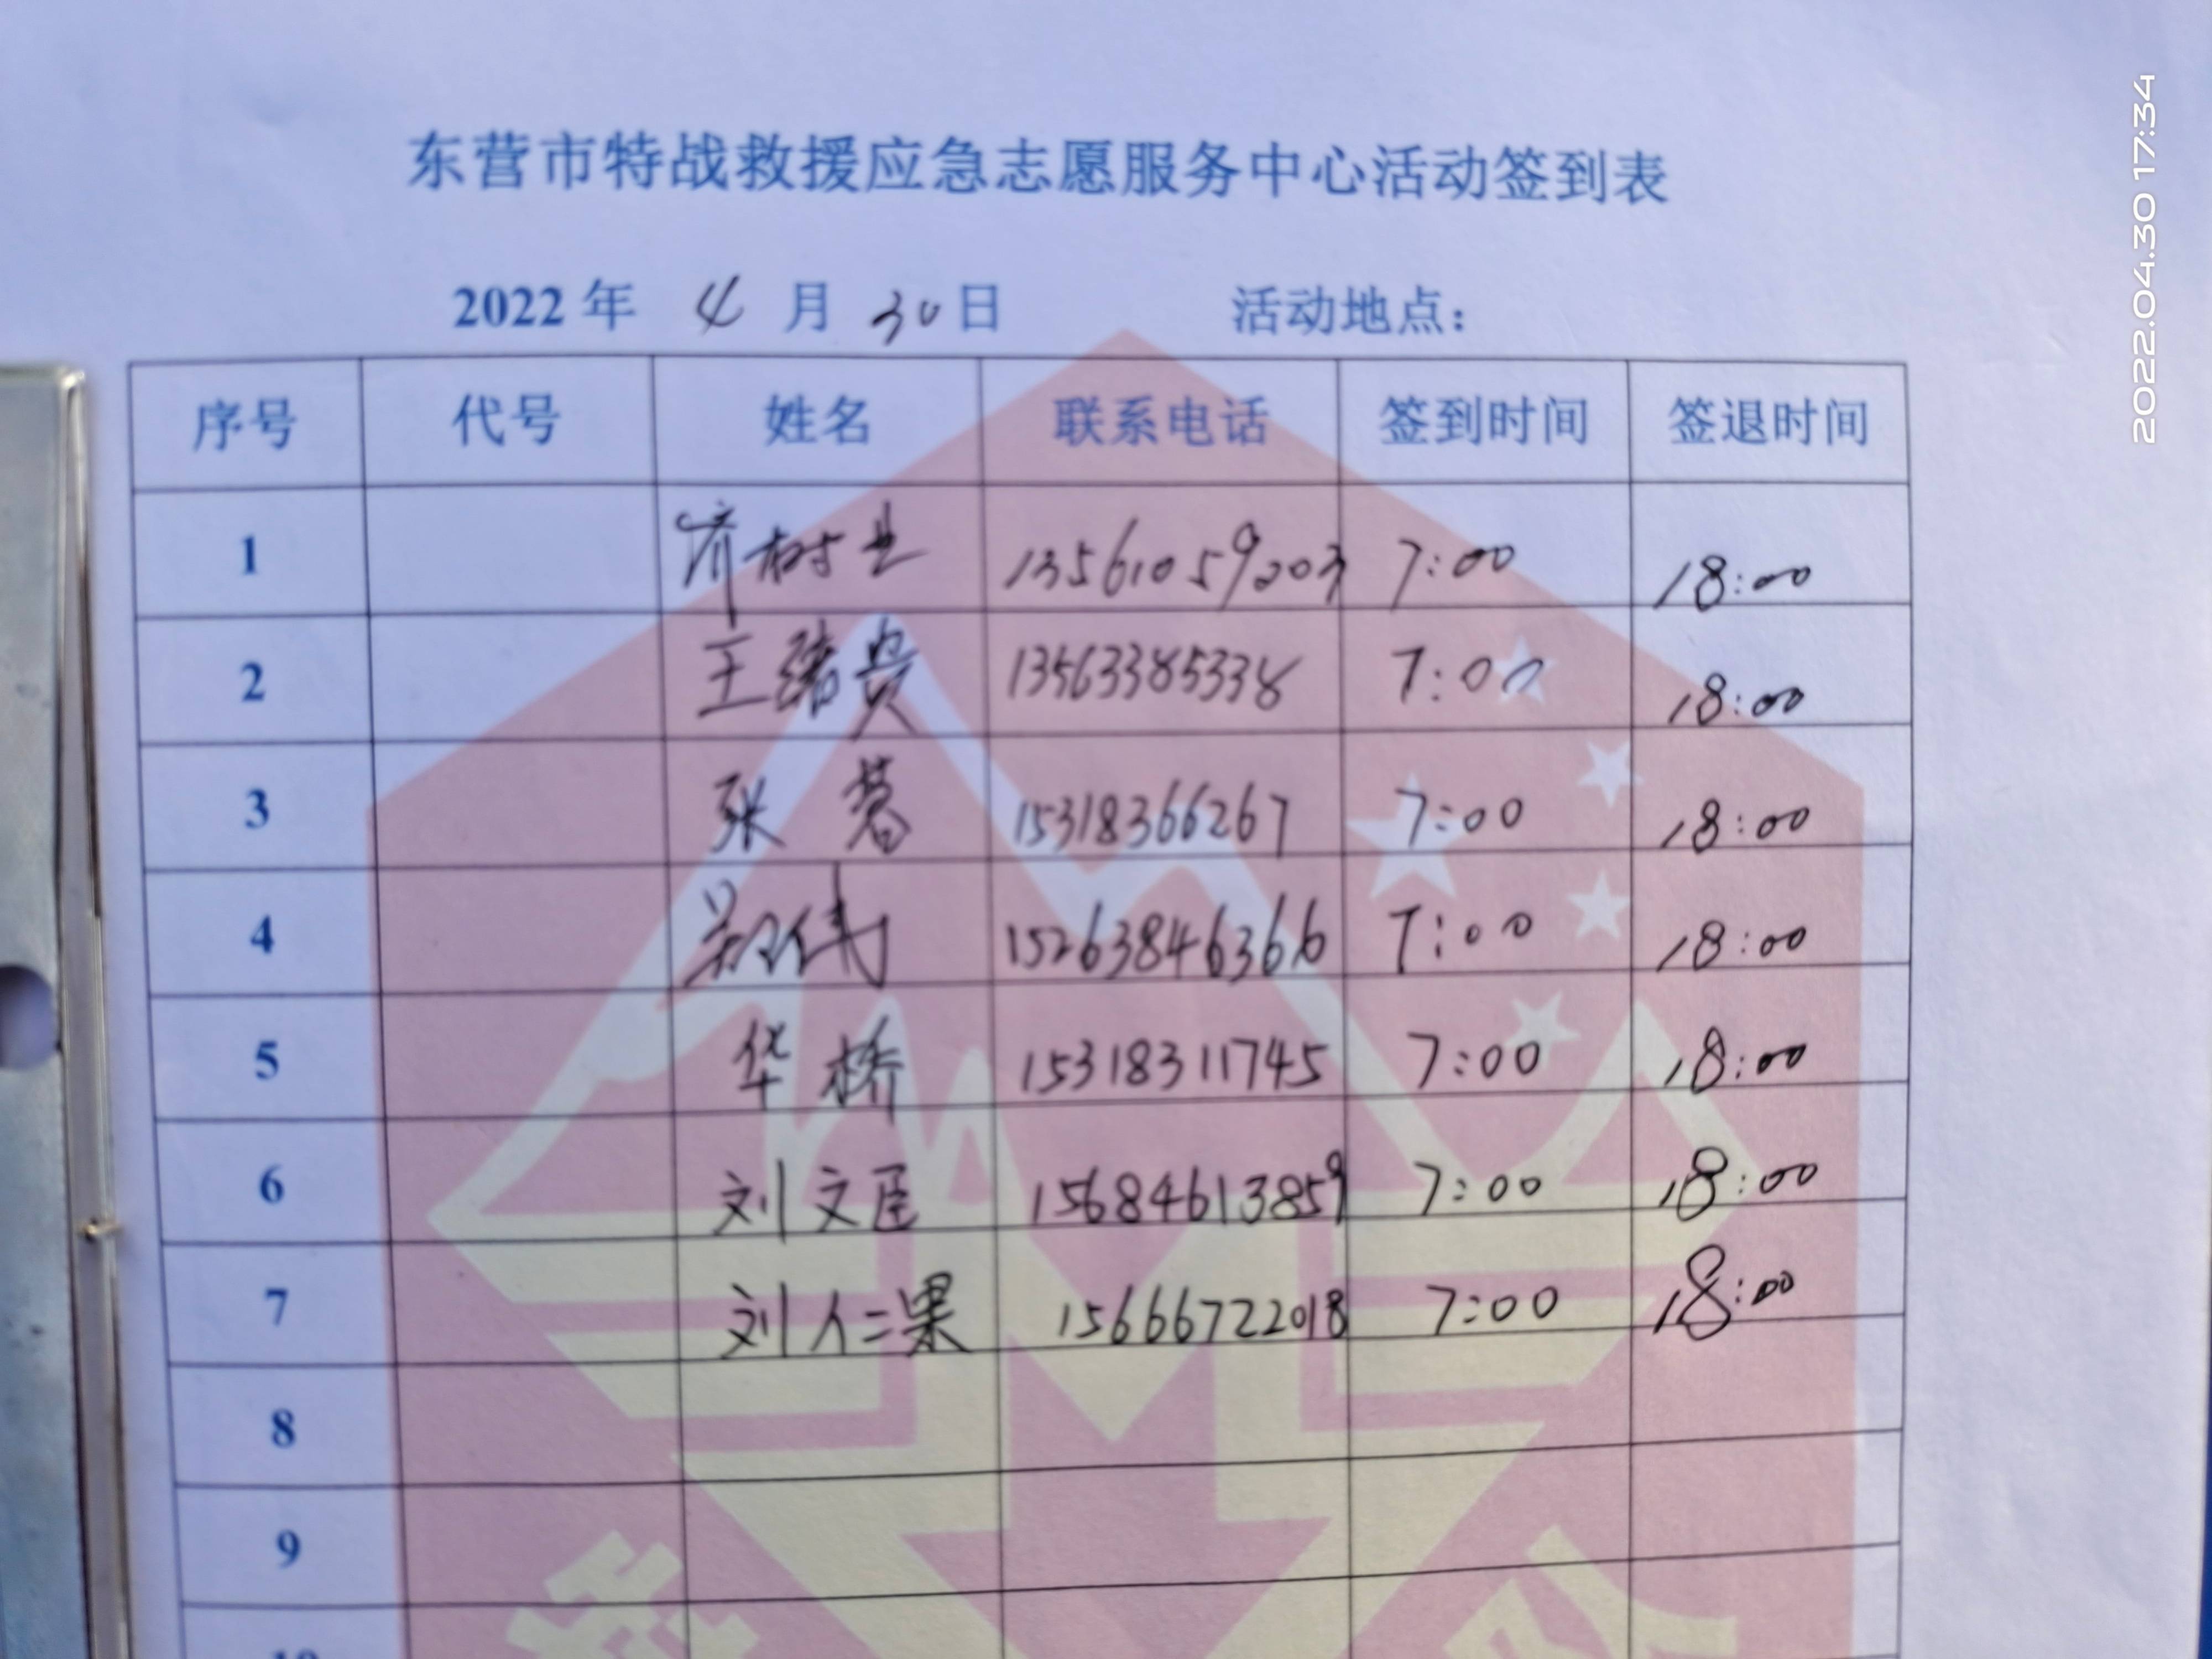 东营市特战救援应急志愿服务中心活动签到表
2022年 4 月 30 日 活动地点：
序号 代号 姓名 联系电话 签到时间 签退时间
1 13561059203 7:00 18:00
2 王绪贵 13563385338 7:00 18:00
3 张 15318366267 7:00 18:00
4 郑伟 15263846366 7:00 18:00
5 华桥 15318311745 7:00 18:00
6 刘文臣 15684613859 7:00 18:00
7 刘仁果 15666722018 7:00 18:00
8
9
10
2022.04.30 17:34